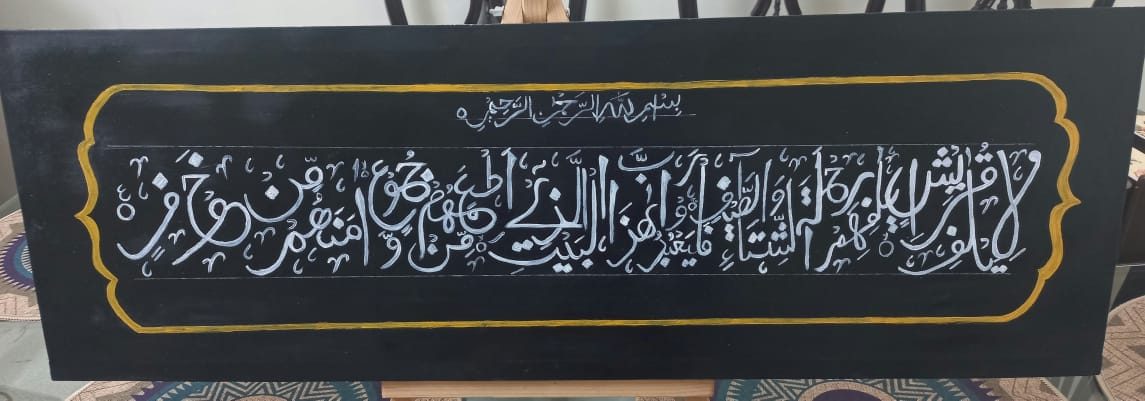 بِسْمِ اللَّهِ الرَّحْمٰنِ الرَّحِيْمِ
لِاِيْلٰفِ قُرَيْشٍ اٖلٰفِهِمْ رِحْلَةَ الشِّتَاءِ وَالصَّيْفِ فَلْيَعْبُدُوْا رَبَّ هٰذَا الْبَيْتِ الَّذِيْ اَطْعَمَهُمْ مِّنْ جُوْعٍ وَّ اٰمَنَهُمْ مِّنْ خَوْفٍ